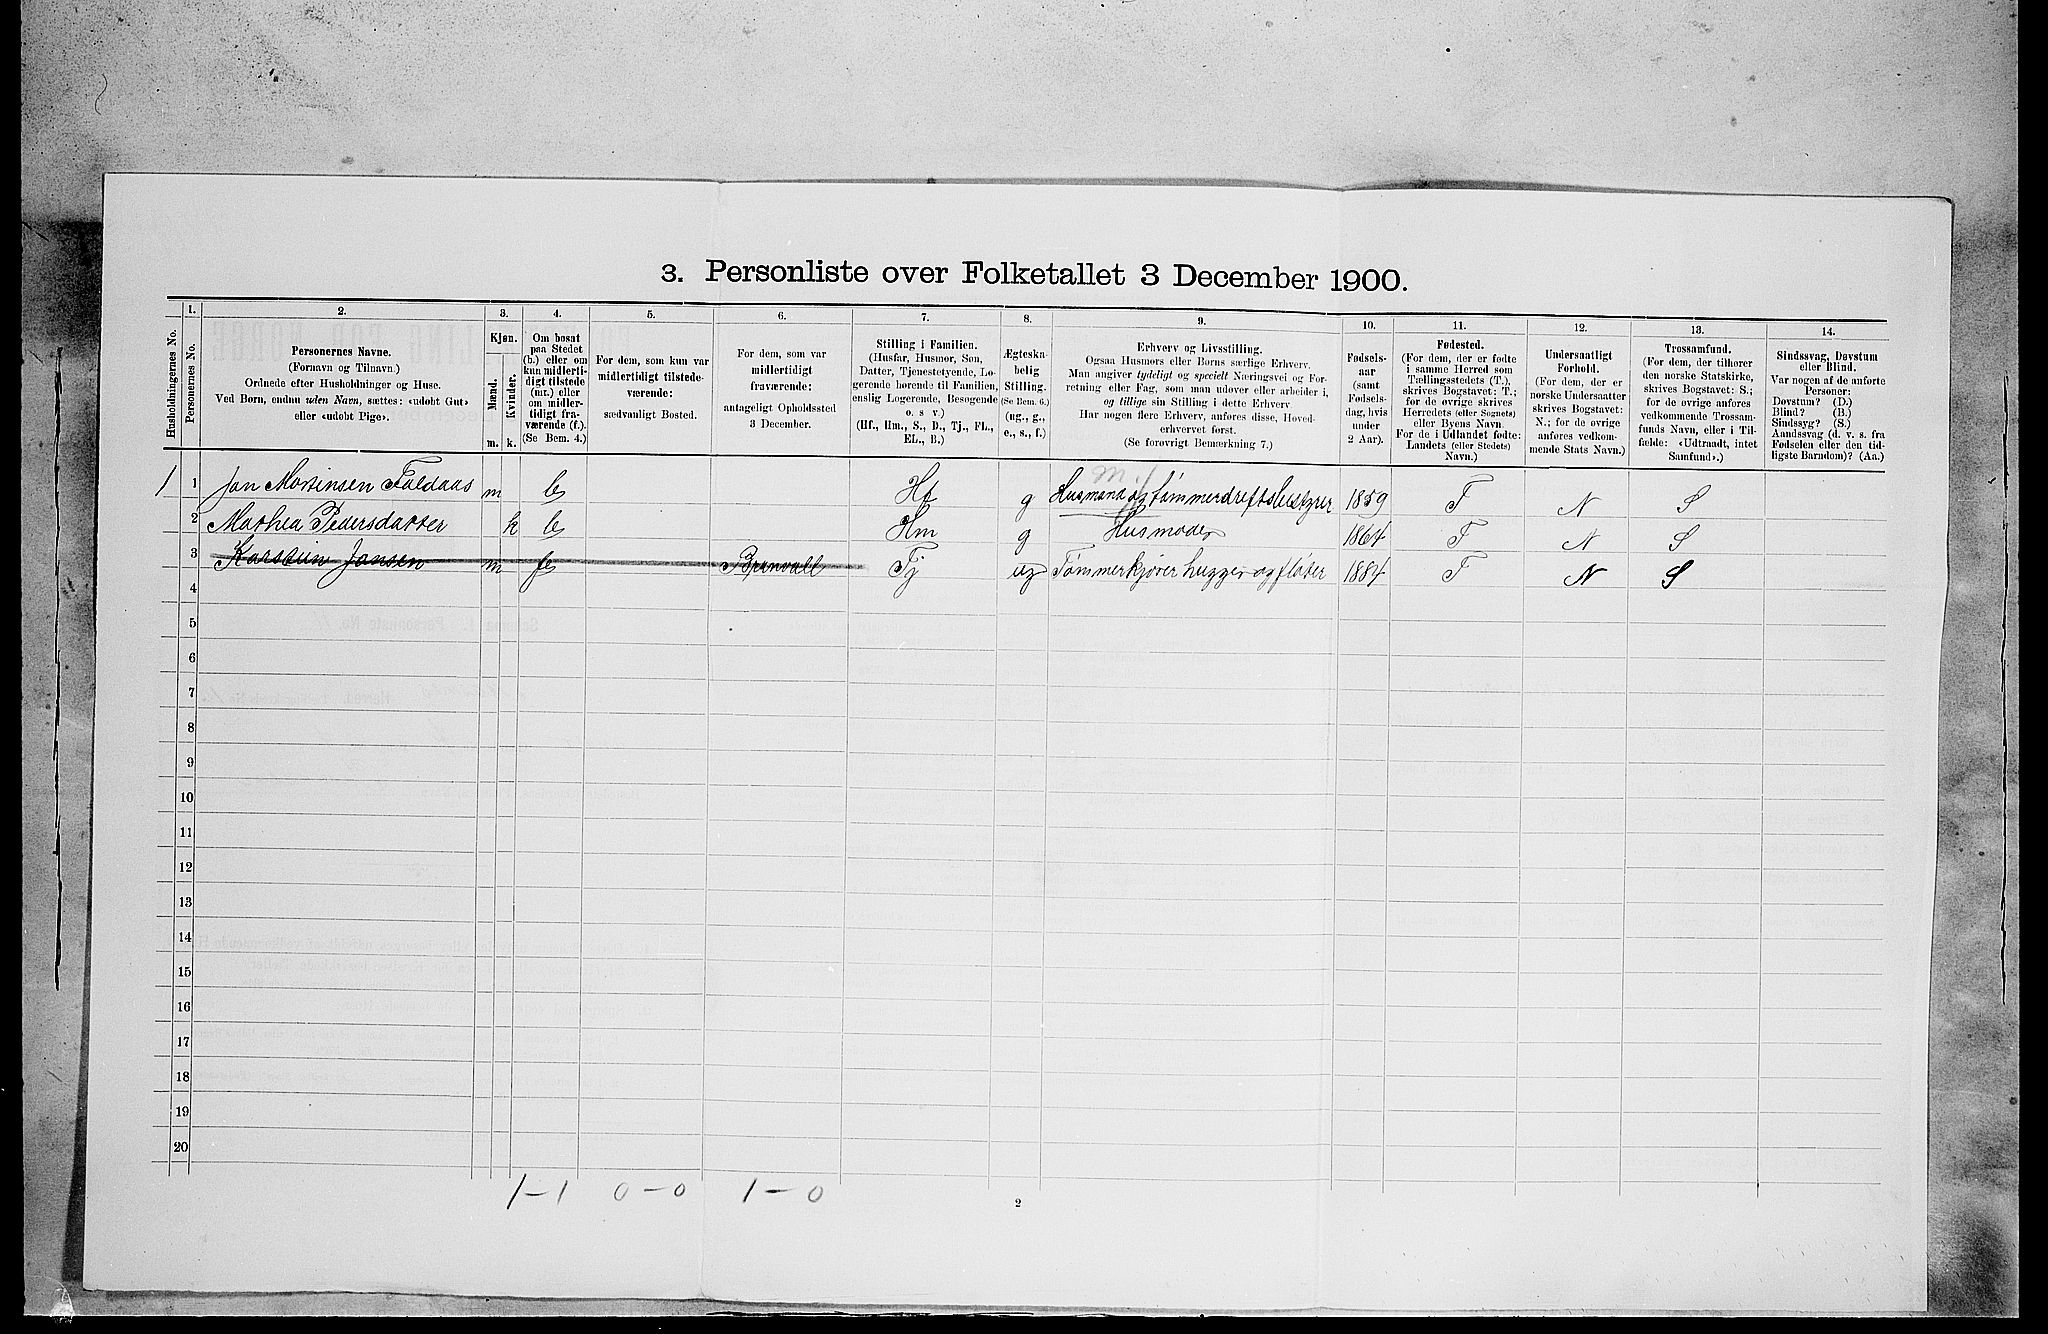 3. Personliste over Folketallet 3 December 1900.
Husholdningernes No.
1.
Personernes No.
2.
Personernes Navne.
(Fornavn og Tilnavn.)
Ordnede efter Husholdninger og Huse.
Ved Børn, endnu uden Navn, sættes: «udøbt Gut»
eller «udøbt Pige».
3.
Kjøn.
Mænd.
Kvinder.
m. k.
4.
Om bosat
paa Stedet
(b.) eller om
kun midlerti-
digt tilstede
(mt.) eller
om midler-
tidigt fra-
værende (f.).
(Se Bem. 4.)
5.
For dem, som kun var
midlertidigt tilstede-
værende:
sædvanligt Bosted.
6.
For dem, som var
midlertidigt
fraværende:
antageligt Opholdssted
3 December.
7.
Stilling i Familien.
(Husfar, Husmor, Søn,
Datter, Tjenestetyende, Lo-
gerende hørende til Familien,
enslig Logerende, Besøgende
o. s v.)
(Hf., Hm., S., D., Tj., FL.,
EL., B.)
8.
Ægteska-
belig
Stilling.
(Se Bem. 6.)
(ug., g.,
e., s., f.)
9.
Erhverv og Livsstilling.
Ogsaa Husmors eller Børns særlige Erhverv.
Man angiver tydeligt og specielt Næringsvei og For-
retning eller Fag, som man udøver eller arbeider i,
og tillige sin Stilling i dette Erhverv
Har nogen flere Erhverv, anføres disse, Hoved-
erhvervet først.
(Se forøvrigt Bemærkning 7.)
10.
Fødsels-
aar
(samt
Fødsels-
dag, hvis
under
2 Aar).
11.
Fødested.
(For dem, der er fødte
i samme Herred som
Tællingsstedets (T.),
skrives Bogstavet: T.;
for de øvrige skrives
Herredets (eller Sognets)
eller Byens Navn.
For de i Udlandet fødte:
Landets (eller Stedets)
Navn.)
12.
Undersaatligt
Forhold.
(For dem, der er
norske Undersaatter
skrives Bogstavet:
N.; for de øvrige
anføres vedkom-
mende Stats Navn.)
13.
Trossamfund.
(For dem, der tilhører
den norske Statskirke,
skrives Bogstavet: S.;
for de øvrige anføres
vedkommende Trossam-
funds Navn, eller i Til-
fælde: «Udtraadt, intet
Samfund».)
14.
Sindssvag, Døvstum
eller Blind.
Var nogen af de anførte
Personer:
Døvstum? (D.)
Blind? (B.)
Sindssyg? (S.)
Aandssvag (d. v. s. fra
Fødselen eller den tid-
ligste Barndom)? (Aa.)
1 1 Jan Mortinsen Foldaas m b Hf g Husmand og tømmerdriftsbestyrer 1859 T N S
2 Mathea Pedersdatter k b Hm g Husmoder 1864 T N S
3 Karstein Jansen m f Brønvall Tj ug Tømmerkjører hugger og fløter 1884 T N S
4
5
6
7
8
9
10
11
12
13
14
15
16
17
18
19
20
1-1 0-0 1-0
2